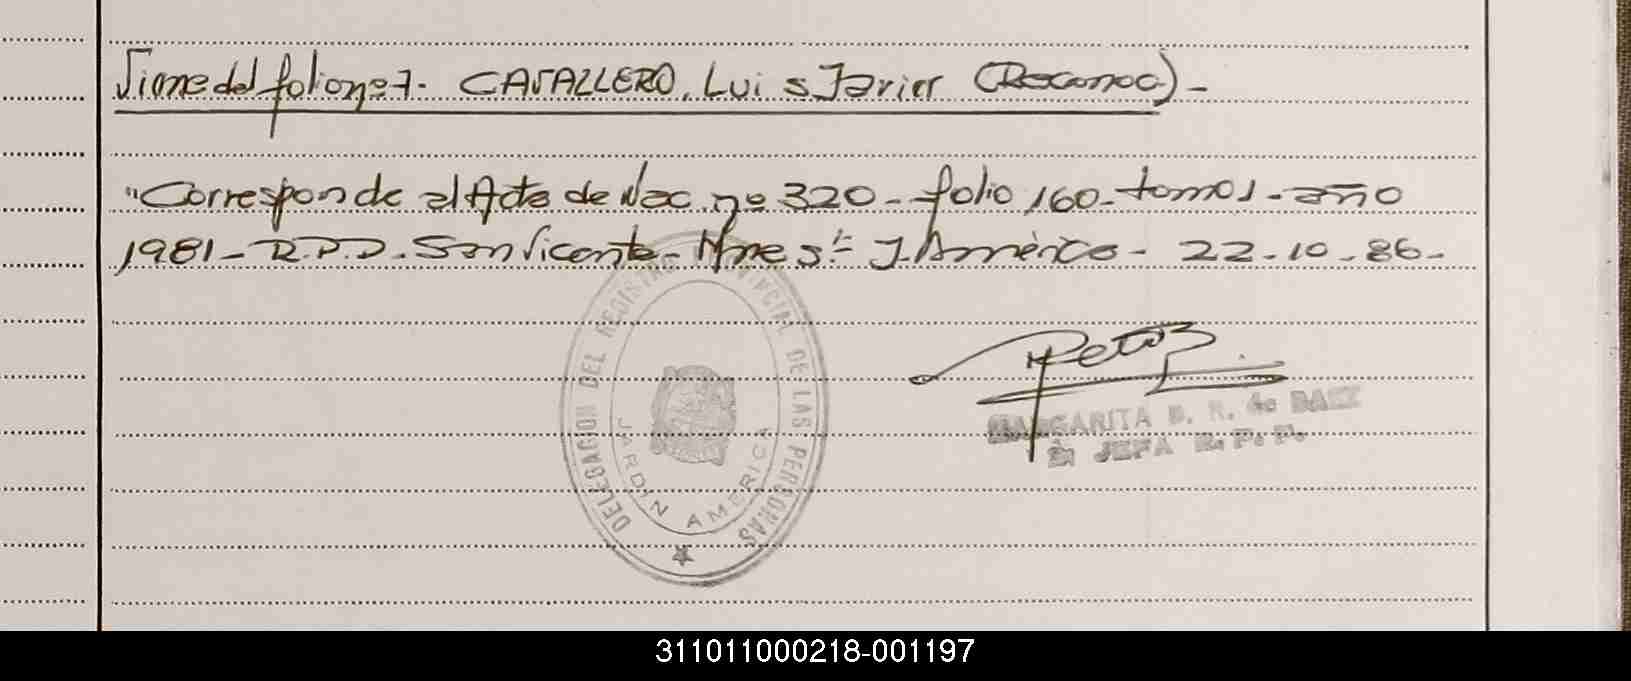 Viene del folio nº 7. CAVALLERO, Luis Javier (Reconoc.) -
"Corresponde al Acta de Nac. nº 320 - folio 160 - tomo 1 - año
1981 - R.P.P. San Vicente - Mnes.- J. América - 22-10-86 -
DELEGACION DEL REGISTRO PROVINCIAL DE LAS PERSONAS
JARDIN AMERICA
MARGARITA B. R. de BAEZ
JEFA R. P. P.
311011000218-001197